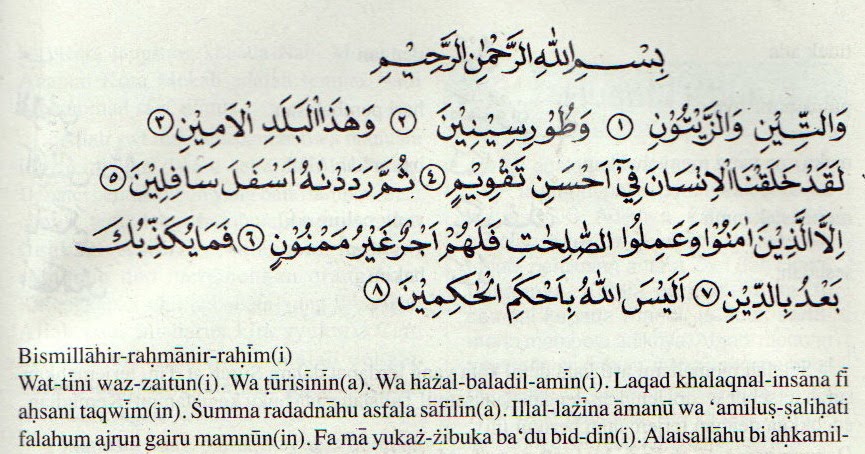 بِسْمِ اللّٰهِ الرَّحْمٰنِ الرَّحِيْمِ
وَالتِّيْنِ وَالزَّيْتُوْنِ ١ وَطُوْرِسِيْنِيْنَ ٢ وَهٰذَا الْبَلَدِ الْاَمِيْنِ ٣
لَقَدْ خَلَقْنَا الْاِنْسَانَ فِيْٓ اَحْسَنِ تَقْوِيْمٍ ٤ ثُمَّ رَدَدْنٰهُ اَسْفَلَ سَافِلِيْنَ ٥
اِلَّا الَّذِيْنَ اٰمَنُوْا وَعَمِلُوا الصّٰلِحٰتِ فَلَهُمْ اَجْرٌ غَيْرُ مَمْنُوْنٍ ٦ فَمَا يُكَذِّبُكَ
بَعْدُ بِالدِّيْنِ ٧ اَلَيْسَ اللّٰهُ بِاَحْكَمِ الْحٰكِمِيْنَ ٨
Bismillāhir-raḥmānir-raḥīm(i)
Wat-tīni waz-zaitūn(i). Wa ṭūrisinin(a). Wa hāżal-baladil-amīn(i). Laqad khalaqnal-insāna fī
aḥsani taqwīm(in). Ṡumma radadnāhu asfala sāfilīn(a). Illal-lażīna āmanū wa ‘amiluṣ-ṣāliḥāti
falahum ajrun gairu mamnūn(in). Fa mā yukaż-żibuka ba‘du bid-dīn(i). Alaisallāhu bi aḥkamil-